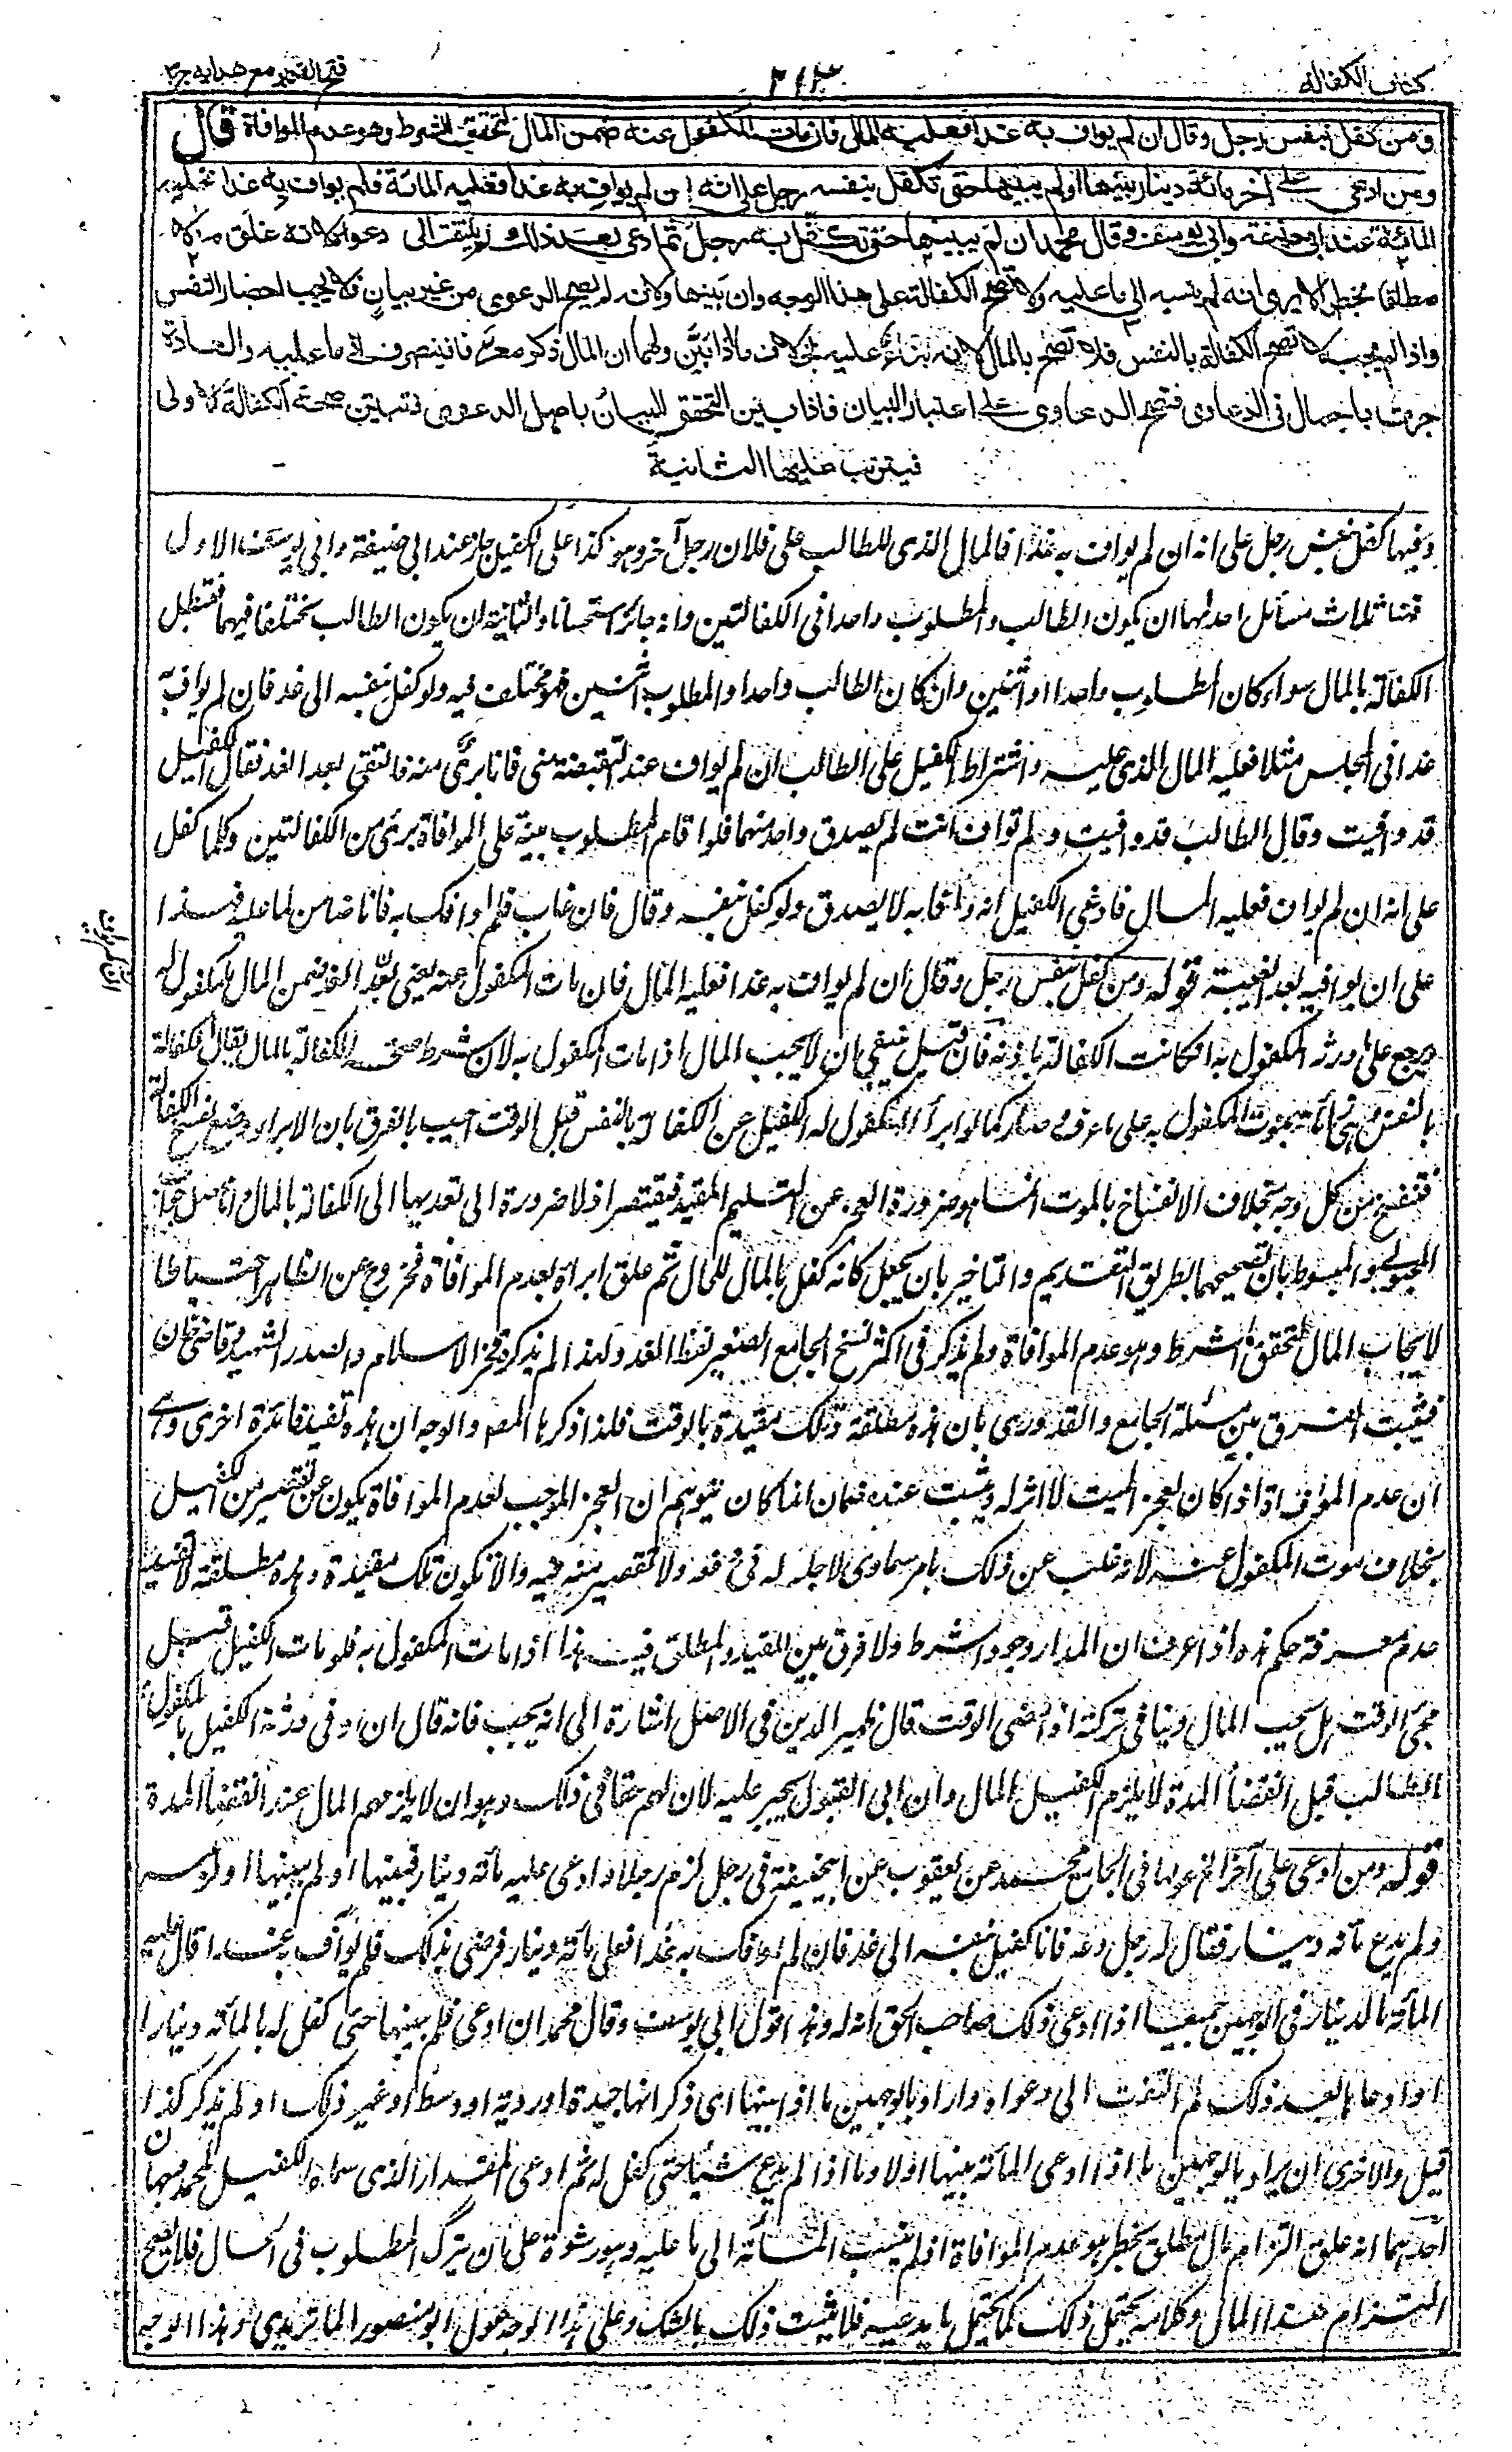 كتاب الكفالة
٢١٣
فتح القدير مع هدايه ج٣
ومن كفل بنفس رجل وقال ان لم يواف به غدا فعليه المال فان مات المكفول عنه ضمن المال لتحقق الشرط وهو عدم الموافاة قال
ومن ادعى على آخر مائة دينار بينها او لم يبينها حتى تكفل بنفسه رجل على انه ان لم يواف به غدا فعليه المائة فلم يواف به غدا فعليه
المائة عند ابي حنيفة وابي يوسف وقال محمد ان لم يبينها حتى تكفل به رجل ثم ادعى بعد ذلك لم يلتفت الى دعواه لانه علق مالا
مطلقا بخطر الا يرى انه لم ينسبه الى ما عليه ولا تصح الكفالة على هذا الوجه وان بينها ولانه لم يصح الدعوى من غير بيان فلا يجب احضار النفس
واذا لم يجب لا تصح الكفالة بالنفس فلا تصح بالمال لانه بناء عليه بخلاف ما اذا بين ولهما ان المال ذكر معرفا فانينصرف الى ما عليه والعادة
جرت باجمال في الدعاوى فتصح الدعاوى على اعتبار البيان فاذا بين التحق البيان باصل الدعوى فتبين صحة الكفالة الاولى
فيترتب عليها الثانية
وفيها كفل بنفس رجل على انه ان لم يواف به غدا فالمال الذي للطالب على فلان رجل آخر وهو كذا على الكفيل جاز عند ابي حنيفة وابي يوسف الاول
فهنا ثلاث مسائل احدها ان يكون الطالب والمطلوب واحدا في الكفالتين وانه جائز استحسانا والثانية ان يكون الطالب مختلفا فيهما فتبطل
الكفالة بالمال سواء كان المطلوب واحدا او اثنين وان كان الطالب واحدا والمطلوب اثنين فهو مختلف فيه ولو كفل بنفسه الى غد فان لم يواف به
غدا في المجلس مثلا فعليه المال الذي عليه واشترط الكفيل على الطالب ان لم يواف عنده ليقبضه مني فانا برئ منه فالتقى بعد الغد فقال الكفيل
قد وافيت وقال الطالب قد وافيت ولم تواف انت لم يصدق واحد منهما فلو اقام المطلوب بينة على الموافاة برئ من الكفالتين وكلما كفل
على انه ان لم يواف فعليه المال فادعى الكفيل انه وافا به لا يصدق ولو كفل بنفسه وقال فان غاب فلم اوافك به فانا ضامن لما عليه فهذا
على ان يوافيه بعد الغيبة قوله ومن كفل بنفس رجل وقال ان لم يواف به غدا فعليه المال فان مات المكفول عنه يعني بعد الغد ضمن المال للمكفول له
ويرجع على ورثة المكفول به اذا كانت الكفالة باذنه فان قيل ينبغي ان لا يجب المال اذا مات المكفول به لان شرط صحة الكفالة بالمال بقاء الكفالة
بالنفس وهي بموت المكفول به على ما عرف وصار كما لو ابرأ المكفول له الكفيل عن الكفالة بالنفس قبل الوقت اجيب بالفرق بان الابراء وضع لفسخ الكفالة
فتنفسخ من كل وجه بخلاف الانفساخ بالموت انما هو ضرورة العجز عن التسليم المقيد فيقتصر اذ لا ضرورة الى تعديها الى الكفالة بالمال
المبسوط بان تصحيحها بطريق التقديم والتاخير بان يجعل كانه كفل بالمال للحال ثم علق ابراءه بعدم الموافاة فخروج عن الظاهر احتياطا
لايجاب المال لتحقق الشرط وهو عدم الموافاة ولم يذكر في اكثر نسخ الجامع الصغير لفظ الغد ولهذا لم يذكره فخر الاسلام والصدر الشهيد وقاضيخان
فيثبت الفرق بين مسئلة الجامع والقدوري بان هذه مطلقة وتلك مقيدة بالوقت فلذا ذكرها المصـ والوجه ان هذه تفيد فائدة اخرى وهي
ان عدم الموافاة اذا كان لعجز الميت لا اثر له ويثبت عنده ضمان المال كان يتوهم ان العجز الموجب لعدم الموافاة يكون عن تقصير من الكفيل
بخلاف موت المكفول عنه لانه غلب عن ذلك بامر سماوي لا حيلة له في دفعه ولا تقصير منه فيه والا فكون تلك مقيدة وهذه مطلقة لا يفيد
عدم معرفة حكم هذه اذا عرف ان المدار وجود الشرط ولا فرق بين المقيد والمطلق فيه هذا اذا مات المكفول به فلو مات الكفيل قبل
مجئ الوقت هل يجب المال دينا في تركته اذا مضى الوقت قال ظهير الدين في الاصل اشارة الى انه يجب فانه قال ان وفى ورثة الكفيل بالمكفول به
الطالب قبل انقضاء المدة لا يلزم الكفيل المال وان ابى القبول يجبر عليه لان لهم حقا في ذلك وهو ان لا يلزمهم المال عند انقضاء المدة
قوله ومن ادعى على آخر الخ صورتها في الجامع محمد عن يعقوب عن ابيحنيفة في رجل لزم رجلا وادعى عليه مائة دينار فبينها او لم يبينها او لزمه
ولم يدع مائة دينار فقال له رجل دعه فانا كفيل بنفسه الى غد فان لم اوافك به غدا فعلي مائة دينار فرضي بذلك فلم يواف به غدا قال عليه
المائة الدينار في الوجهين جميعا اذا ادعى ذلك صاحب الحق انه له وهذا قول ابي يوسف وقال محمد ان ادعى فلم يبينها حتى كفل له بالمائة دينار
او ادعاها بعد ذلك لم التفت الى دعواه واراد بالوجهين ما اذا بينها اي ذكر انها جيدة او ردية او وسط او غير ذلك او لم يذكر كذا
قيل والاحرى ان يراد بالوجهين ما اذا ادعى المائة بينها او لا وما اذا لم يدع شيئا حتى كفل له ثم ادعى المقدار الذي سماه الكفيل لمحمد وجهان
احدهما انه علق التزام مال مطلق بخطر هو عدم الموافاة اذ لم ينسب المائة الى ما عليه وهو رشوة على ان يترك المطلوب في الحال فلا يصح
التزام هذا المال وكلامه يحتمل ذلك كما يحتمل ما يدعيه فلا يثبت ذلك بالشك وعلى هذا الوجه عول ابو منصور الماتريدي وهذا الوجه